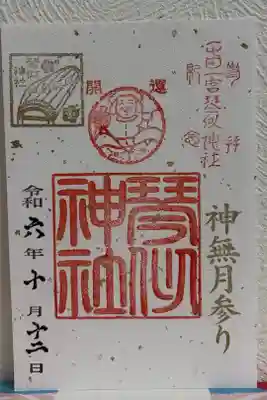 開運
琴似
神社
神無月参り
琴似
神社
令和六年十月十二日